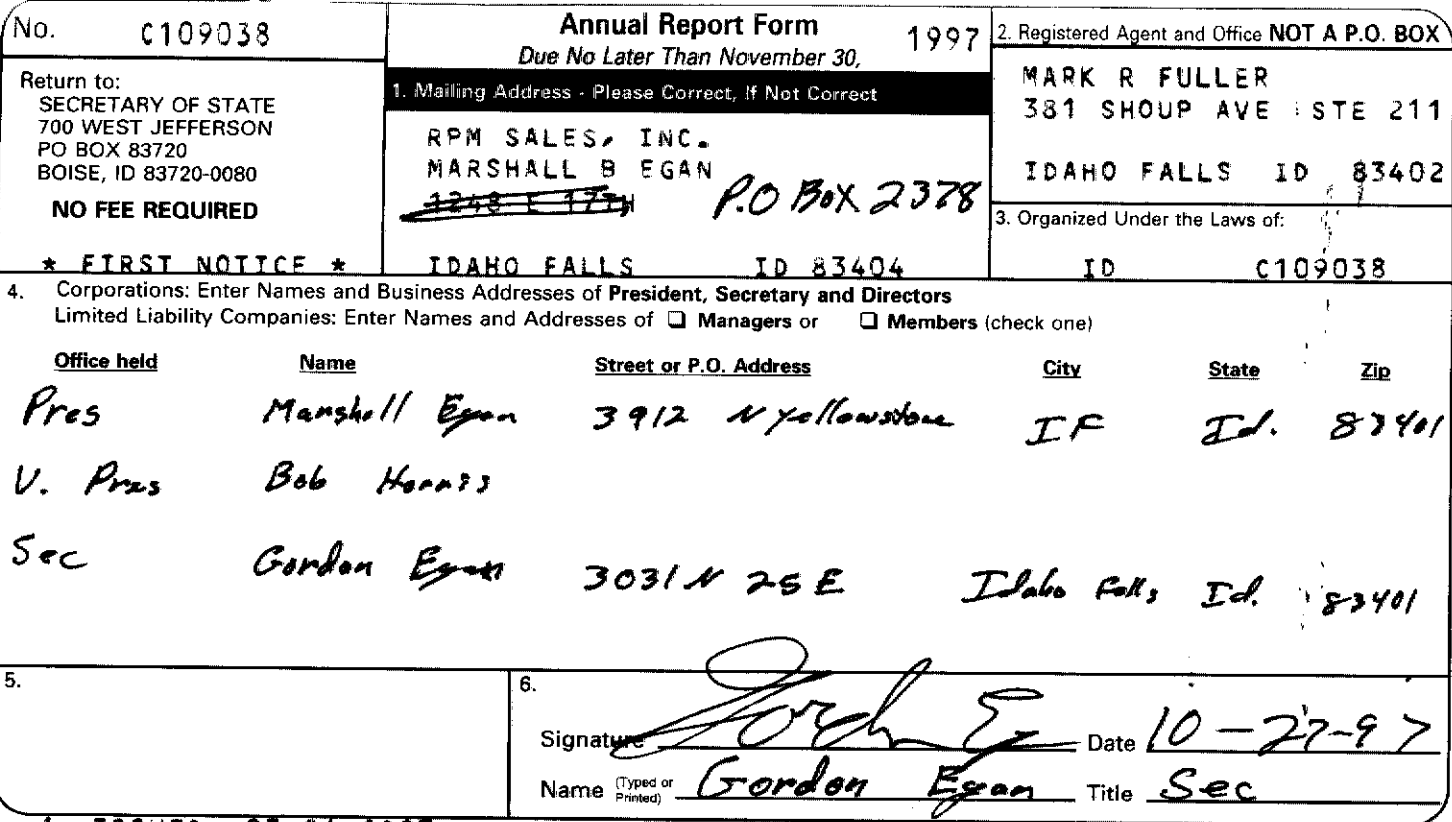 No. C109038
Return to:
SECRETARY OF STATE
700 WEST JEFFERSON
PO BOX 83720
BOISE, ID 83720-0080
NO FEE REQUIRED
* FIRST NOTICE *
Annual Report Form 1997
Due No Later Than November 30,
1. Mailing Address - Please Correct, If Not Correct
RPM SALES, INC.
MARSHALL B EGAN
1248 E 17TH P.O Box 2378
IDAHO FALLS ID 83404
2. Registered Agent and Office NOT A P.O. BOX
MARK R FULLER
381 SHOUP AVE STE 211
IDAHO FALLS ID 83402
3. Organized Under the Laws of:
ID C109038
4. Corporations: Enter Names and Business Addresses of President, Secretary and Directors
Limited Liability Companies: Enter Names and Addresses of ❑ Managers or ❑ Members (check one)
Office held Name Street or P.O. Address City State Zip
Pres Marshall Egan 3912 N Yellowstone IF Id. 83401
V. Pres Bob Harris
Sec Gordon Egan 3031 N 25 E Idaho Falls Id. 83401
5.
6.
Signature Gordon Eg Date 10-27-97
Name (Typed or Printed) Gordon Egan Title Sec